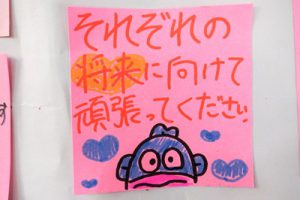 それぞれの
将来に向けて
頑張ってください
す